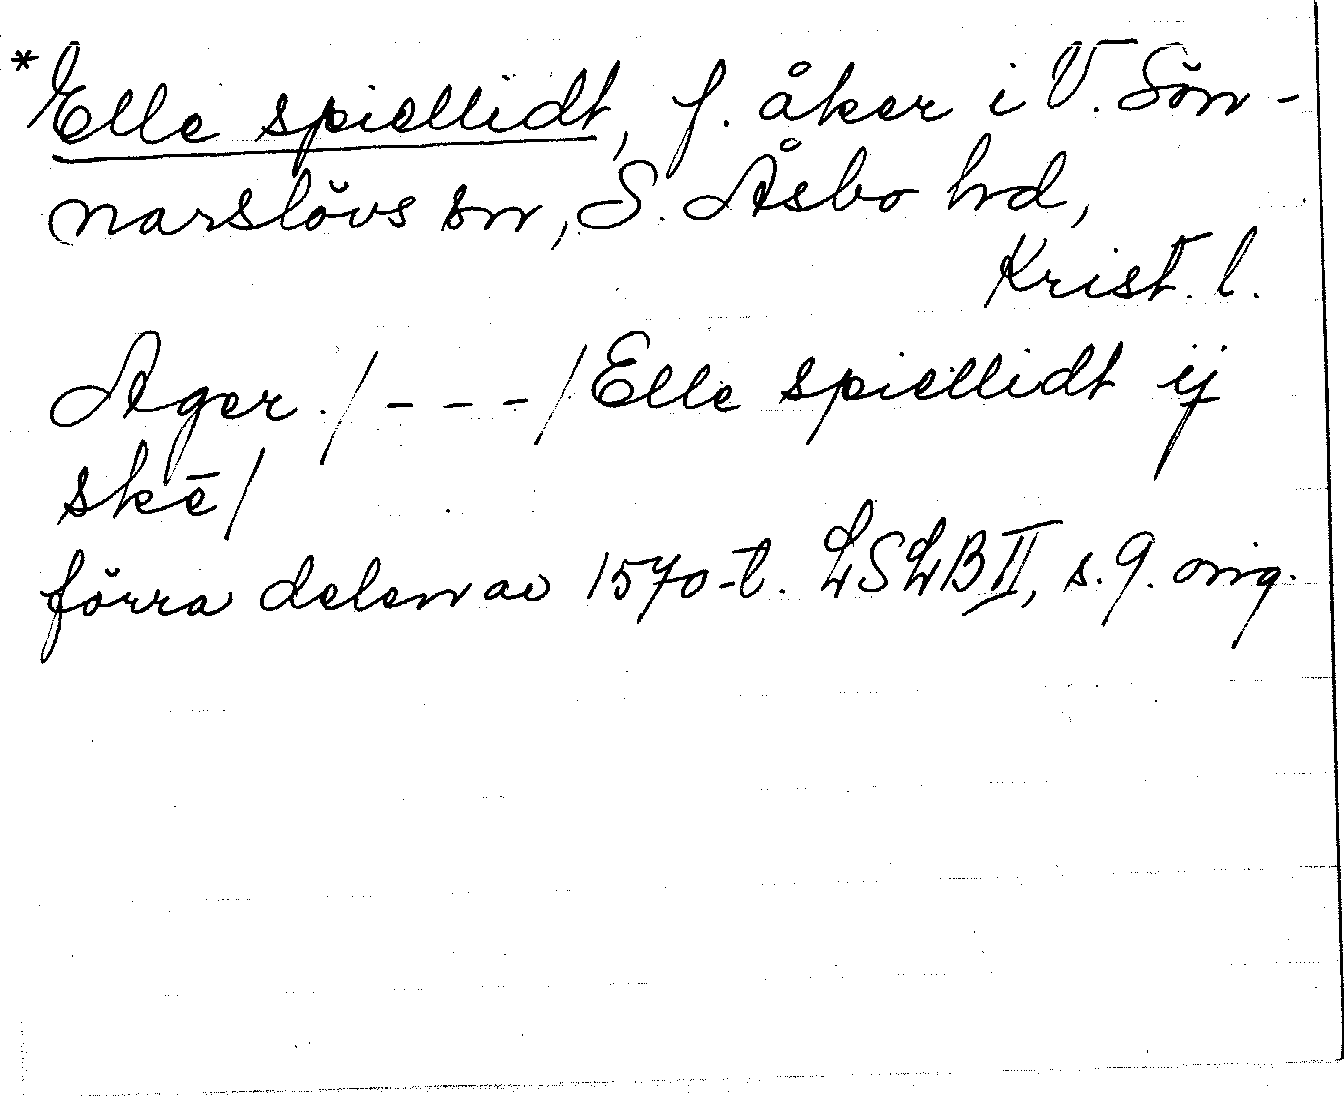 *Elle spiellidt, f. åker i V. Sön-
narslövs sn, S. Åsbo hd,
Krist. l.
Ager /---/ Elle spiellidt ij
skē/
förra delen av 1570-t. LSLB II, s. 9. orig.